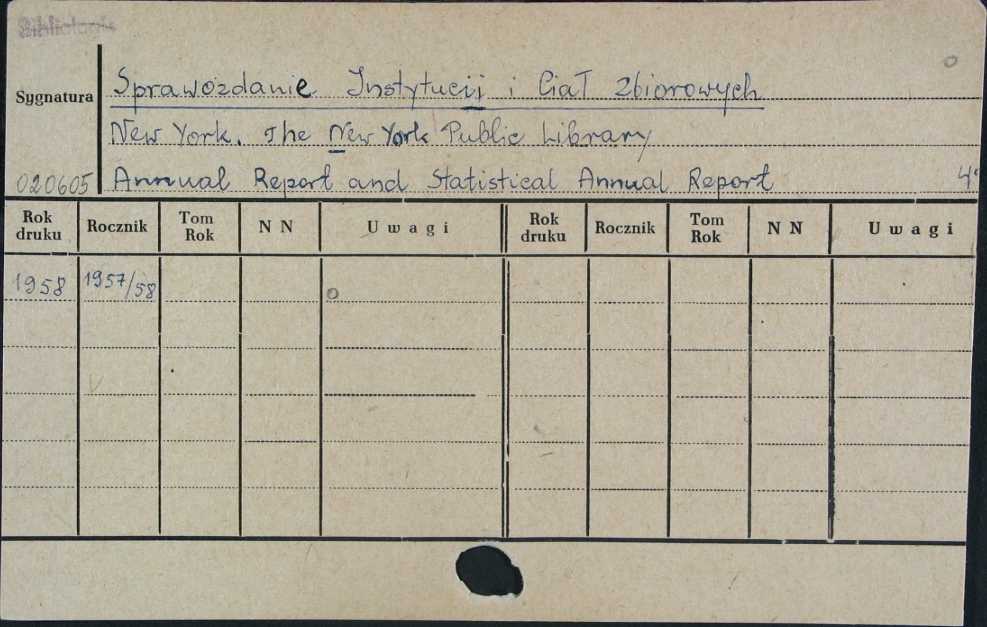 Bibliologia
Sygnatura
Sprawozdanie Instytucji i Ciał Zbiorowych
New York. The New York Public Library
020605 Annual Report and Statistical Annual Report 4°
Rok druku Rocznik Tom Rok N N Uwagi Rok druku Rocznik Tom Rok N N Uwagi
1958 1957/58